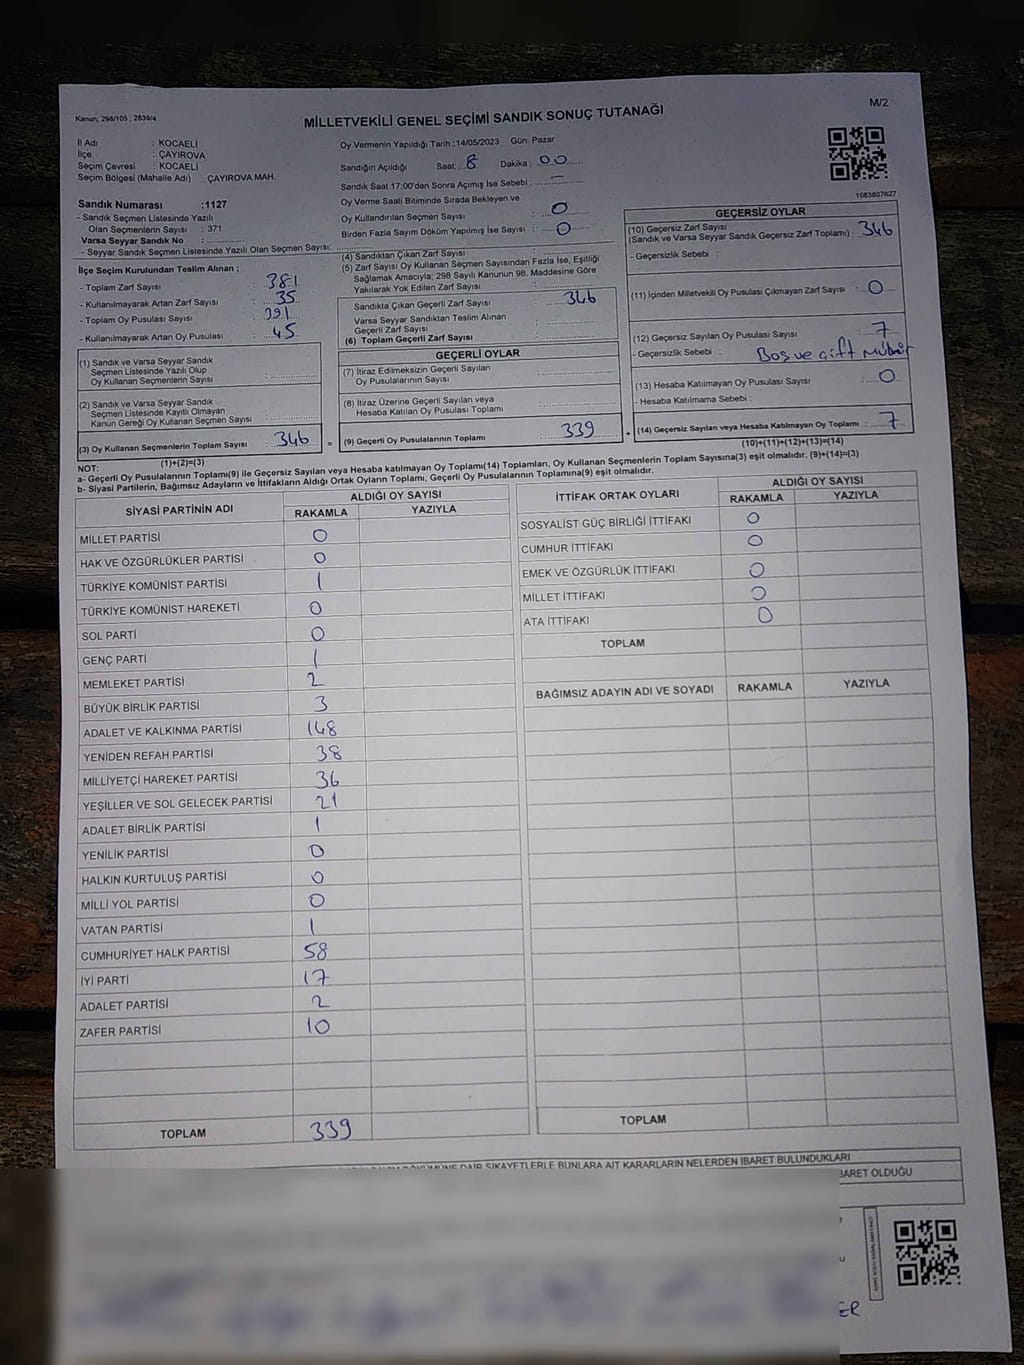 Kanun; 298/105 , 2839/4
M/2
MİLLETVEKİLİ GENEL SEÇİMİ SANDIK SONUÇ TUTANAĞI
İl Adı : KOCAELİ
İlçe : ÇAYIROVA
Seçim Çevresi : KOCAELİ
Seçim Bölgesi (Mahalle Adı) : ÇAYIROVA MAH.
Oy Vermenin Yapıldığı Tarih :14/05/2023 Gün: Pazar
Sandığın Açıldığı Saat: 8 Dakika : 00
Sandık Saat 17:00'den Sonra Açımış İse Sebebi : –
Oy Verme Saati Bitiminde Sırada Bekleyen ve
Oy Kullandırılan Seçmen Sayısı : 0
Birden Fazla Sayım Döküm Yapılmış İse Sayısı : 0
1083807627
Sandık Numarası :1127
- Sandık Seçmen Listesinde Yazılı
Olan Seçmenlerin Sayısı : 371
Varsa Seyyar Sandık No :
- Seyyar Sandık Seçmen Listesinde Yazılı Olan Seçmen Sayısı:
İlçe Seçim Kurulundan Teslim Alınan ;
- Toplam Zarf Sayısı : 381
- Kullanılmayarak Artan Zarf Sayısı : 35
- Toplam Oy Pusulası Sayısı : 391
- Kullanılmayarak Artan Oy Pusulası : 45
(1) Sandık ve Varsa Seyyar Sandık
Seçmen Listesinde Yazılı Olup
Oy Kullanan Seçmenlerin Sayısı :
(2) Sandık ve Varsa Seyyar Sandık
Seçmen Listesinde Kayıtlı Olmayan
Kanun Gereği Oy Kullanan Seçmen Sayısı :
(3) Oy Kullanan Seçmenlerin Toplam Sayısı : 346 =
(1)+(2)=(3)
(4) Sandıktan Çıkan Zarf Sayısı :
(5) Zarf Sayısı Oy Kullanan Seçmen Sayısından Fazla İse, Eşitliği
Sağlamak Amacıyla; 298 Sayılı Kanunun 98. Maddesine Göre
Yakılarak Yok Edilen Zarf Sayısı :
Sandıkta Çıkan Geçerli Zarf Sayısı : 346
Varsa Seyyar Sandıktan Teslim Alınan
Geçerli Zarf Sayısı :
(6) Toplam Geçerli Zarf Sayısı :
GEÇERLİ OYLAR
(7) İtiraz Edilmeksizin Geçerli Sayılan
Oy Pusulalarının Sayısı :
(8) İtiraz Üzerine Geçerli Sayılan veya
Hesaba Katılan Oy Pusulası Toplamı :
(9) Geçerli Oy Pusulalarının Toplamı : 339 +
GEÇERSİZ OYLAR
(10) Geçersiz Zarf Sayısı
(Sandık ve Varsa Seyyar Sandık Geçersiz Zarf Toplamı) : 346
- Geçersizlik Sebebi :
(11) İçinden Milletvekili Oy Pusulası Çıkmayan Zarf Sayısı : 0
(12) Geçersiz Sayılan Oy Pusulası Sayısı : 7
- Geçersizlik Sebebi : Boş ve çift mühür
(13) Hesaba Katılmayan Oy Pusulası Sayısı : 0
- Hesaba Katılmama Sebebi :
(14) Geçersiz Sayılan veya Hesaba Katılmayan Oy Toplamı : 7
(10)+(11)+(12)+(13)=(14)
NOT:
a- Geçerli Oy Pusulalarının Toplamı(9) ile Geçersiz Sayılan veya Hesaba katılmayan Oy Toplamı(14) Toplamları, Oy Kullanan Seçmenlerin Toplam Sayısına(3) eşit olmalıdır. (9)+(14)=(3)
b- Siyasi Partilerin, Bağımsız Adayların ve İttifakların Aldığı Ortak Oyların Toplamı, Geçerli Oy Pusulalarının Toplamına(9) eşit olmalıdır.
SİYASİ PARTİNİN ADI ALDIĞI OY SAYISI
RAKAMLA YAZIYLA
MİLLET PARTİSİ 0
HAK VE ÖZGÜRLÜKLER PARTİSİ 0
TÜRKİYE KOMÜNİST PARTİSİ 1
TÜRKİYE KOMÜNİST HAREKETİ 0
SOL PARTİ 0
GENÇ PARTİ 1
MEMLEKET PARTİSİ 2
BÜYÜK BİRLİK PARTİSİ 3
ADALET VE KALKINMA PARTİSİ 148
YENİDEN REFAH PARTİSİ 38
MİLLİYETÇİ HAREKET PARTİSİ 36
YEŞİLLER VE SOL GELECEK PARTİSİ 21
ADALET BİRLİK PARTİSİ 1
YENİLİK PARTİSİ 0
HALKIN KURTULUŞ PARTİSİ 0
MİLLİ YOL PARTİSİ 0
VATAN PARTİSİ 1
CUMHURİYET HALK PARTİSİ 58
İYİ PARTİ 17
ADALET PARTİSİ 2
ZAFER PARTİSİ 10
TOPLAM 339
İTTİFAK ORTAK OYLARI ALDIĞI OY SAYISI
RAKAMLA YAZIYLA
SOSYALİST GÜÇ BİRLİĞİ İTTİFAKI 0
CUMHUR İTTİFAKI 0
EMEK VE ÖZGÜRLÜK İTTİFAKI 0
MİLLET İTTİFAKI 0
ATA İTTİFAKI 0
TOPLAM
BAĞIMSIZ ADAYIN ADI VE SOYADI RAKAMLA YAZIYLA
TOPLAM
DAİR ŞİKAYETLERLE BUNLARA AİT KARARLARIN NELERDEN İBARET BULUNDUKLARI
BARET OLDUĞU
ER